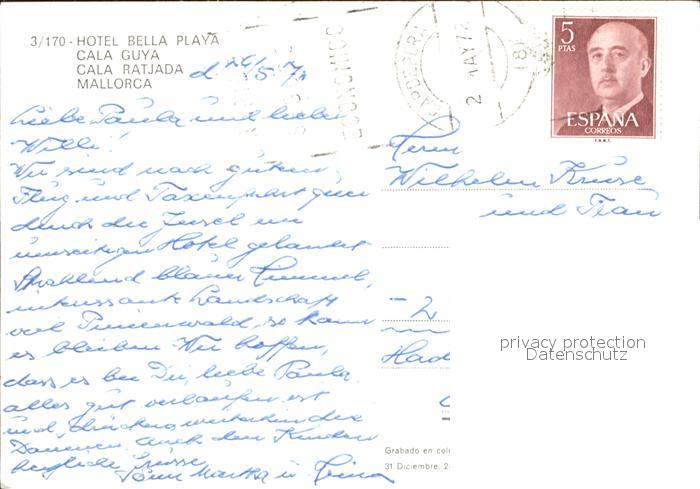 3/170 - HOTEL BELLA PLAYA
CALA GUYA
CALA RATJADA
MALLORCA
d. 26/5.72
CAPDEPERA
2 MAY 72
5
PTAS
ESPAÑA
CORREOS
F.N.M.T.
Liebe Paula und lieber
Willi!
Wir sind nach gutem
Flug und Taxenfahrt quer
durch die Insel im
hiesigen Hotel gelandet
Strahlend blauer Himmel,
interessante Landschaft
viel Pinienwald, so kann
es bleiben. Wir hoffen,
dass es bei Dir, liebe Paula
alles gut verlaufen ist
und drücken weiterhin die
Daumen auch den Kindern
herzliche Grüsse
Martha u.
Herrn
Wilhelm Kruse
und Frau
- 2
Had
privacy protection
Datenschutz
Grabado en col
31 Diciembre, 2